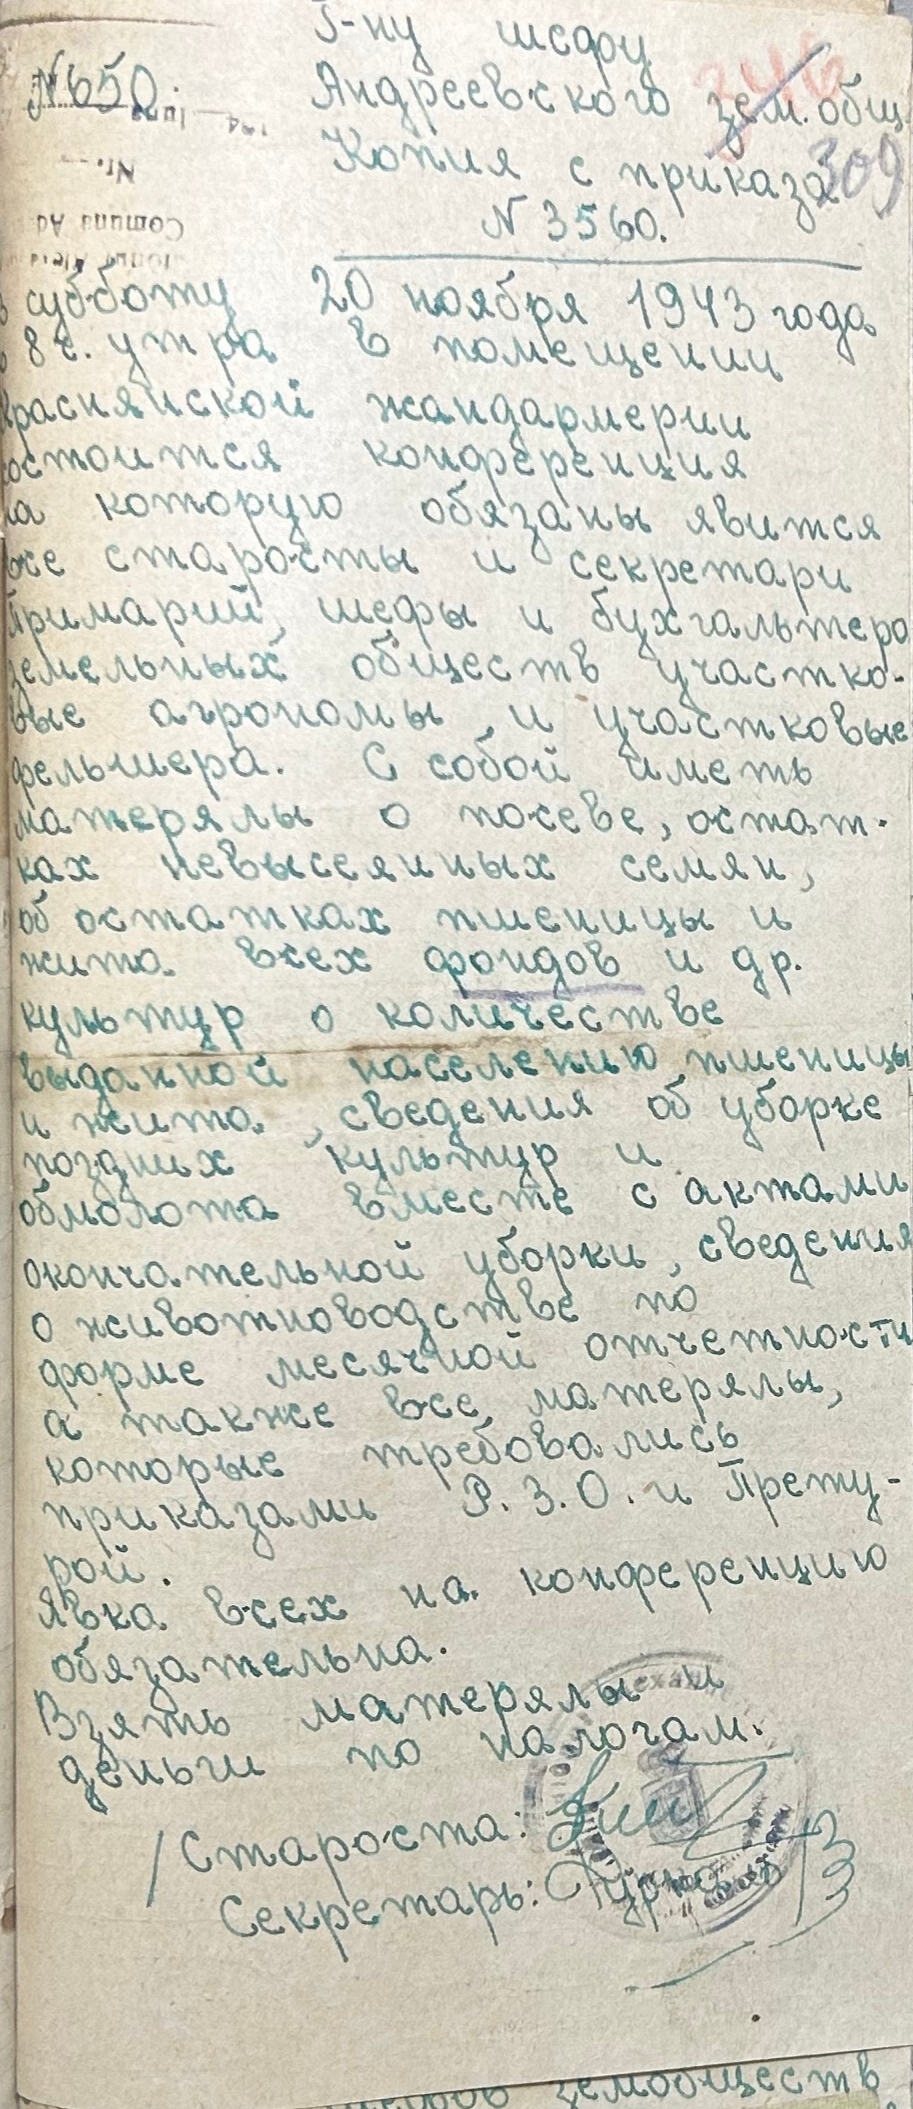 Г-ну шефу
N 650.
Андреевского зем. общ.
346
Копия с приказа
309
N 3560.
Nr.
Comuna
в субботу 20 ноября 1943 года
в 8 ч. утра в помещении
Краснянской жандармерии
состоится конференция
на которую обязаны явится
все старосты и секретари
Примарий, шефы и бухгалтера
земельных обществ участко-
вые агрономы и участковые
фельшера. С собой иметь
матерялы о посеве, остат-
ках невысеянных семян,
об остатках пшеницы и
жита всех фондов и др.
культур о количестве
выданной населению пшеницы
и жита, сведения об уборке
поздних культур и
обмолота вместе с актами
окончательной уборки, сведения
о животноводстве по
форме месячной отчетности
а также все матерялы,
которые требовались
приказами Р.З.О. и Прету-
рой.
Явка всех на конференцию
обязательна.
Взять матерялы и
деньги по налогам.
Староста:
Секретарь:
земобществ